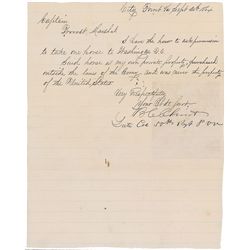 City Point Va Sept 20th 1864
Captain
Provost Marshal
I have the honor to ask permission
to take one horse to Washington D.C.
Said horse is my own private property, purchased
outside the lines of the Army, and was never the property
of the United States
Very Respectfully
Your Obdt Servt
B C Christ
Late Col 50th Regt P V V